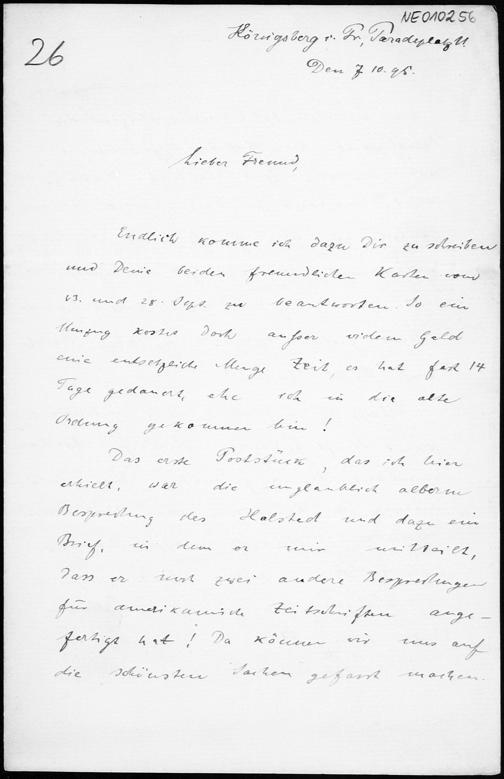 NE010256
26
Königsberg i. Pr., Paradeplatz 11
Den 7. 10. 95.
Lieber Freund,
Endlich komme ich dazu Dir zu schreiben
und Deine beiden freundlichen Karten vom
13. und 28. Sept. zu beantworten. So ein
Umzug kostet doch ausser vielem Geld
eine entsetzliche Menge Zeit, es hat fast 14
Tage gedauert, ehe ich in die alte
Ordnung gekommen bin!
Das erste Poststück, das ich hier
erhielt, war die unglaublich alberne
Besprechung des Halsted und dazu ein
Brief, in dem er mir mitteilt,
dass er noch zwei andere Besprechungen
für amerikanische Zeitschriften ange-
fertigt hat! Da können wir uns auf
die schönsten Sachen gefasst machen.